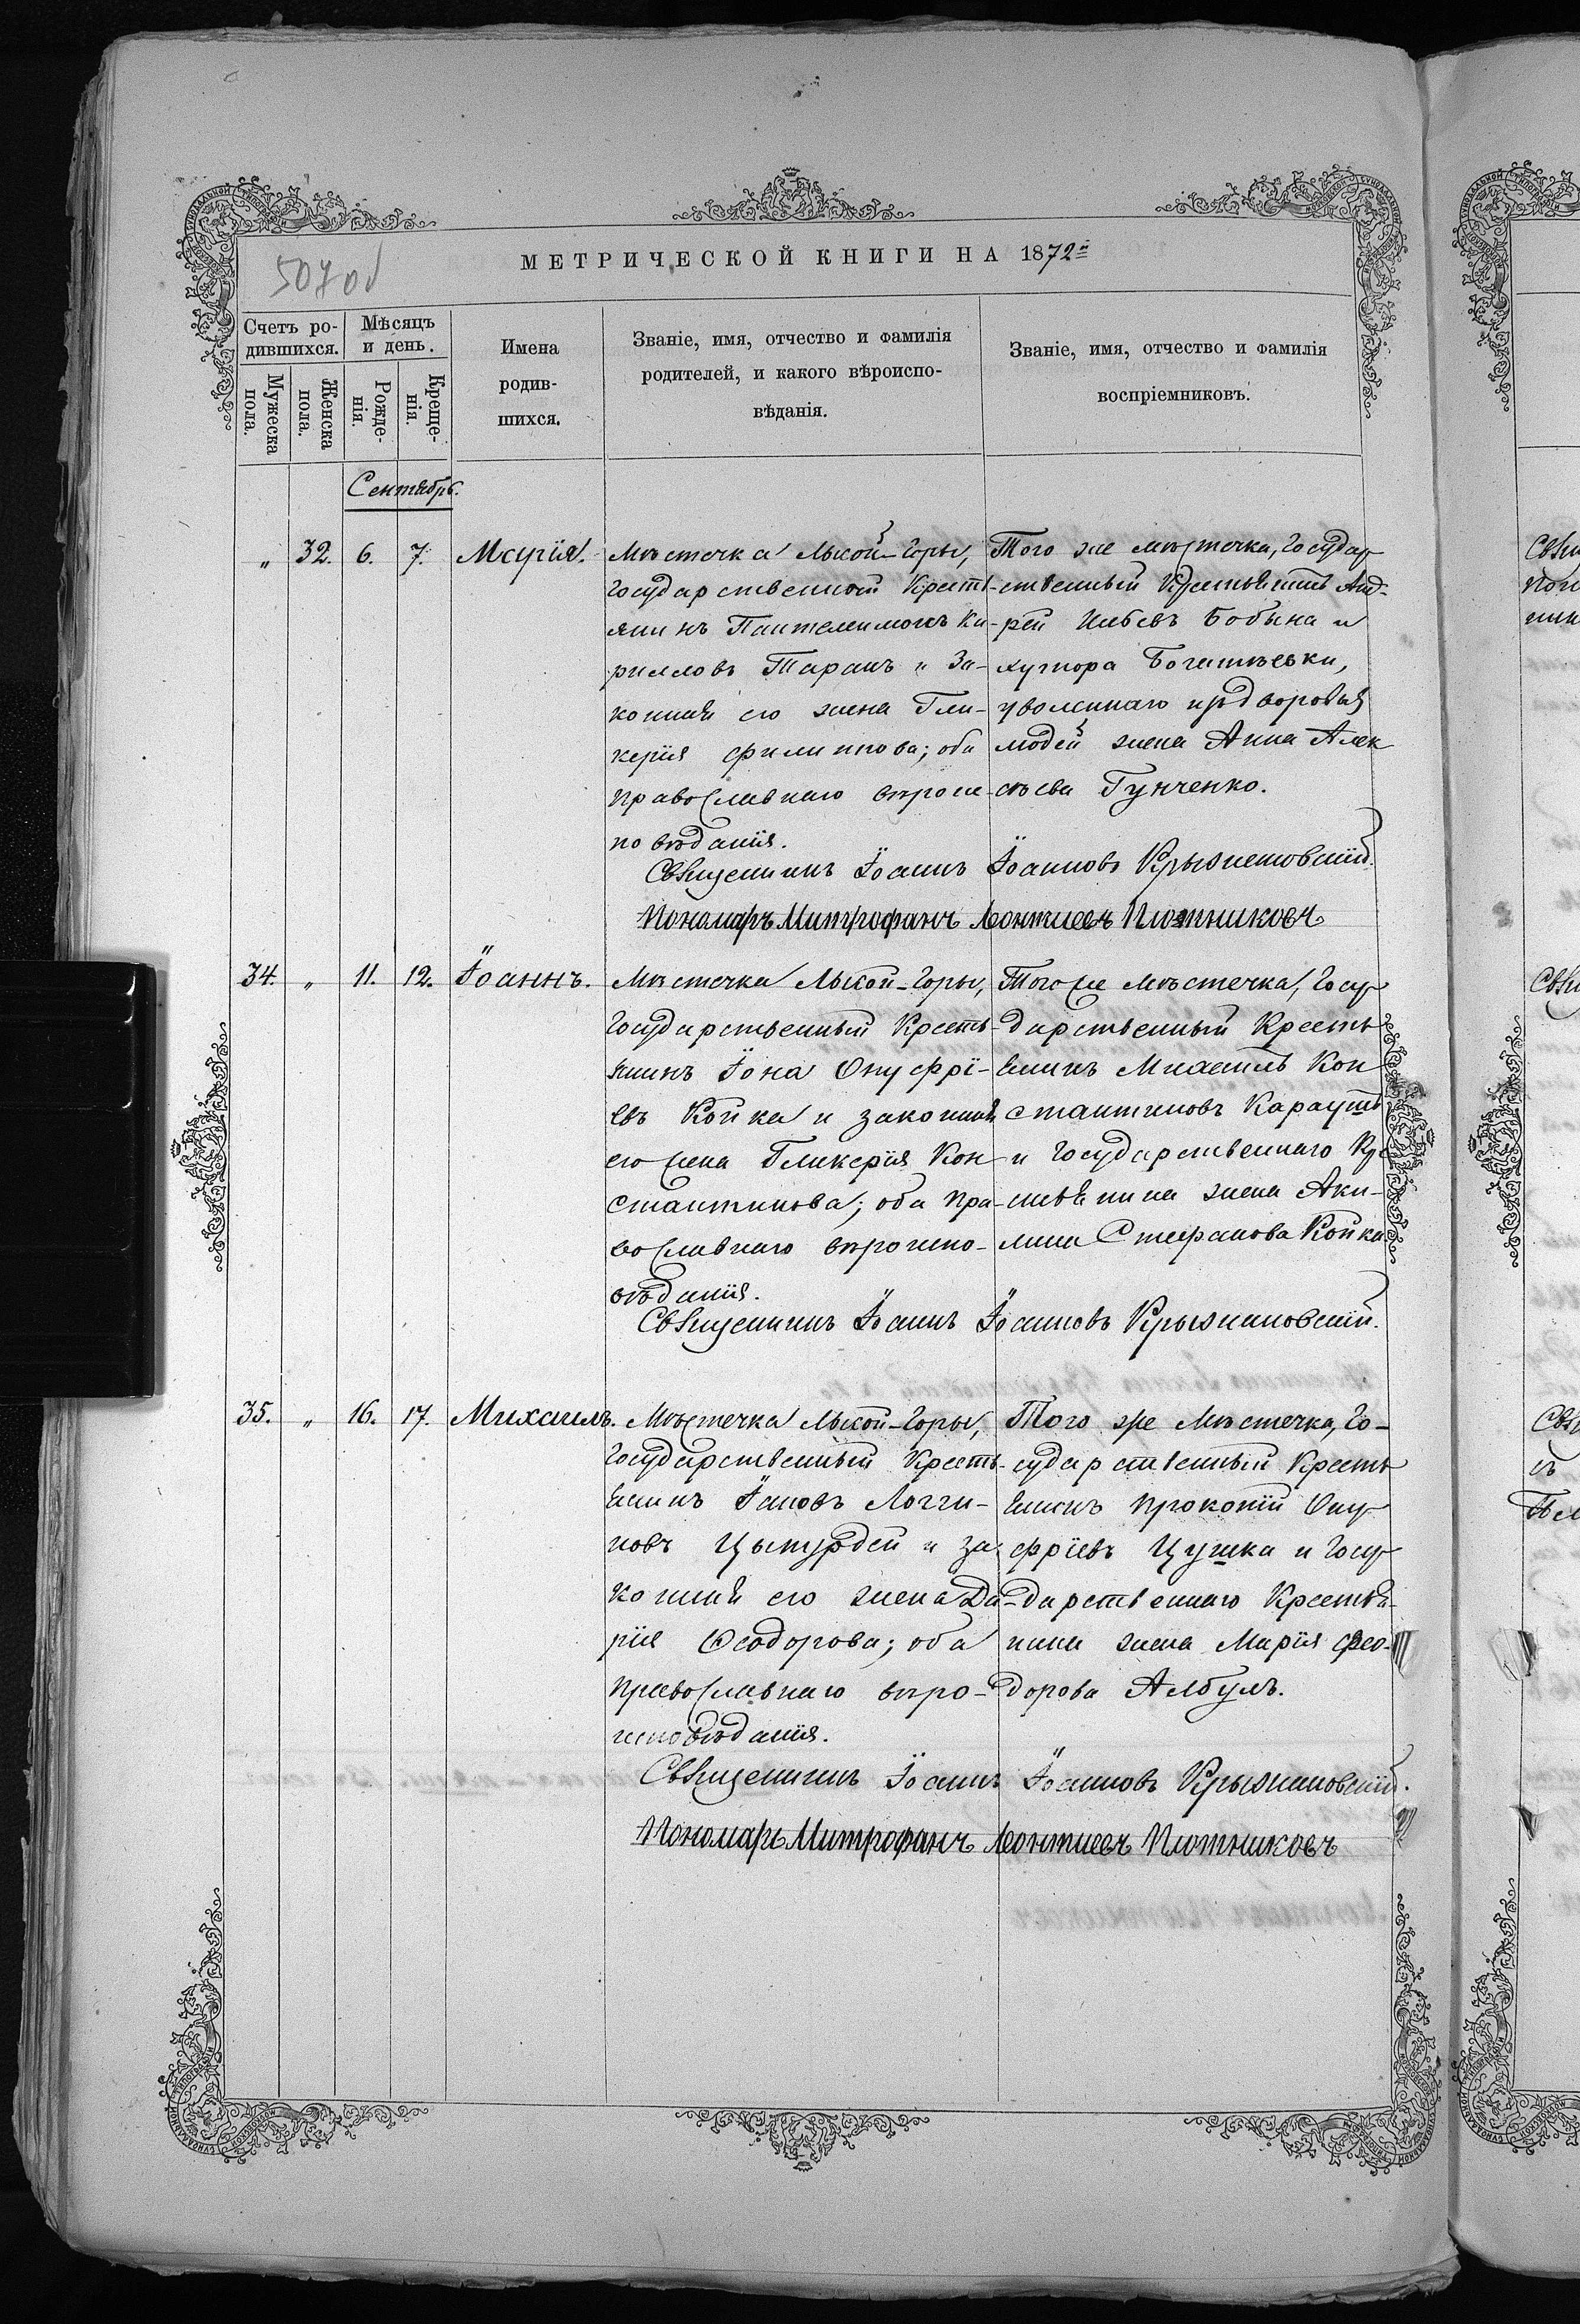 507 об
МЕТРИЧЕСКОЙ КНИГИ НА 1872й
Счетъ ро-
дившихся.
Мѣсяцъ
и день.
Мужеска
пола.
Женска
пола.
Рожде-
нія.
Креще-
нія.
Имена
родив-
шихся.
Званіе, имя, отчество и фамилія
родителей, и какого вѣроиспо-
вѣданія.
Званіе, имя, отчество и фамилія
воспріемниковъ.
Сентябрь.
„ 32. 6. 7. Марія.
Мѣстечка Лысой-Горы,
Государственной Кресть-
янинъ Пантелеимонъ Ки-
рилловъ Таранъ и За-
конная его жена Гли-
керія Филиппова; оба
православнаго вѣроис-
повѣданія.
Того же мѣстечка, Государ-
ственный Крестьянинъ Анд-
рей Бобына и
хутора Богатыевки,
уволеннаго
людей жена Анна Алек
сѣева Гунченко.
Священникъ Іоаннъ Іоанновъ Крыжановскій.
Пономарь Митрофанъ Леонтиевъ Плотниковъ
34. „ 11. 12. Іоаннъ.
Мѣстечка Лысой-Горы,
Государственный Кресть-
янинъ Іона Онуфрі-
евъ Койка и законная
его жена Гликерія Кон-
стантинова; оба пра-
вославнаго вѣроиспо-
вѣданія.
Того же мѣстечка, Госу-
дарственный Кресть
янинъ Михаилъ Кон
стантиновъ Караушъ
и Государственнаго Кре
стьянина жена Аки-
лина Стефанова Койка
Священникъ Іоаннъ Іоанновъ Крыжановскій.
35. „ 16. 17. Михаилъ.
Мѣстечка Лысой-Горы,
Государственный Кресть-
янинъ Іаковъ Логги-
новъ Цытурдей и за-
конная его жена Да-
рія Ѳеодорова; оба
православнаго вѣро-
исповѣданія.
Того же Мѣстечка, Го-
сударственный Кресть
янинъ Прокопій Ону-
фріевъ Цушка и Госу-
дарственнаго Крестья-
нина жена Марія Фео-
дорова Албулъ.
Священникъ Іоаннъ Іоанновъ Крыжановскій.
Пономарь Митрофанъ Леонтиевъ Плотниковъ